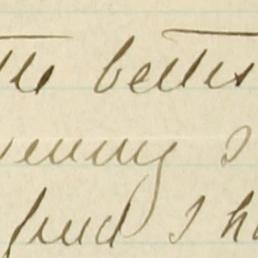 the better
evening I
find I ha